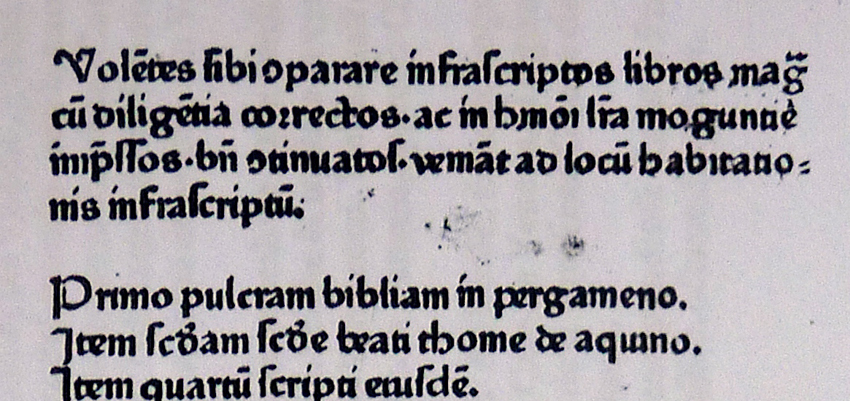 Volẽtes sibi ꝯparare infrascriptos libros mag̃
cũ diligẽtia coꝛrectos. ac in hmõi lr̃a moguntie
imp̃ssos. bñ ꝯtinuatos. veniãt ad locũ habitatio⸗
nis infrascriptũ.
Primo pulcram bibliam in pergameno.
Item scd̃am scd̃e beati thome de aquino.
Item quartũ scripti eiusdẽ.